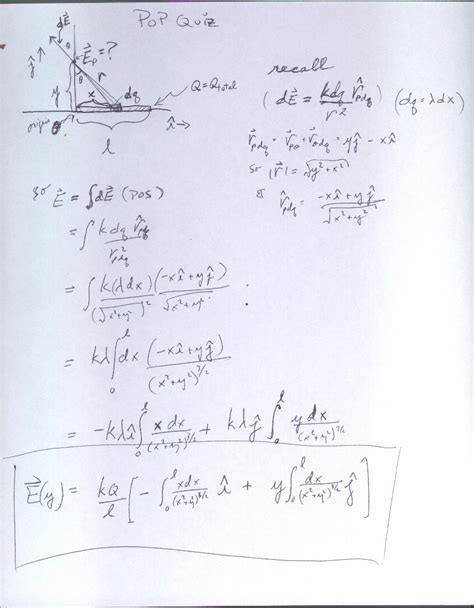 POP QUIZ
dE⃗
θ
E⃗_p = ?
ĵ
y
θ
r
x
dq
Q = Q_total
origin
î →
l
recall
( dE⃗ = k dq / r² r̂_pdq ) (dq = λdx)
r⃗_pdq = r⃗_po + r⃗_odq = yĵ - xî
so |r⃗| = √(y² + x²)
& r̂_pdq = (-xî + yĵ) / √(x² + y²)
so E⃗ = ∫dE⃗ (pos)
= ∫ k dq r̂_pdq / r²_pdq
= ∫ k(λdx) / (√(x² + y²))² (-xî + yĵ) / √(x² + y²)
= kλ ∫₀^l dx (-xî + yĵ) / (x² + y²)^(3/2)
= -kλî ∫₀^l x dx / (x² + y²)^(3/2) + kλĵ ∫₀^l y dx / (x² + y²)^(3/2)
E⃗(y) = kQ / l [ - ∫₀^l xdx / (x² + y²)^(3/2) î + y ∫₀^l dx / (x² + y²)^(3/2) ĵ ]